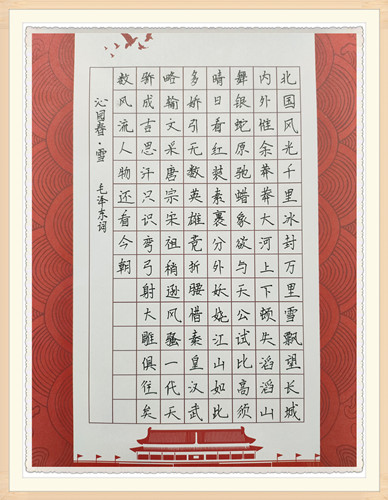 北国风光千里冰封万里雪飘望长城
内外惟余莽莽大河上下顿失滔滔山
舞银蛇原驰蜡象欲与天公试比高须
晴日看红装素裹分外妖娆江山如此
多娇引无数英雄竞折腰惜秦皇汉武
略输文采唐宗宋祖稍逊风骚一代天
骄成吉思汗只识弯弓射大雕俱往矣
数风流人物还看今朝
沁园春·雪 毛泽东词